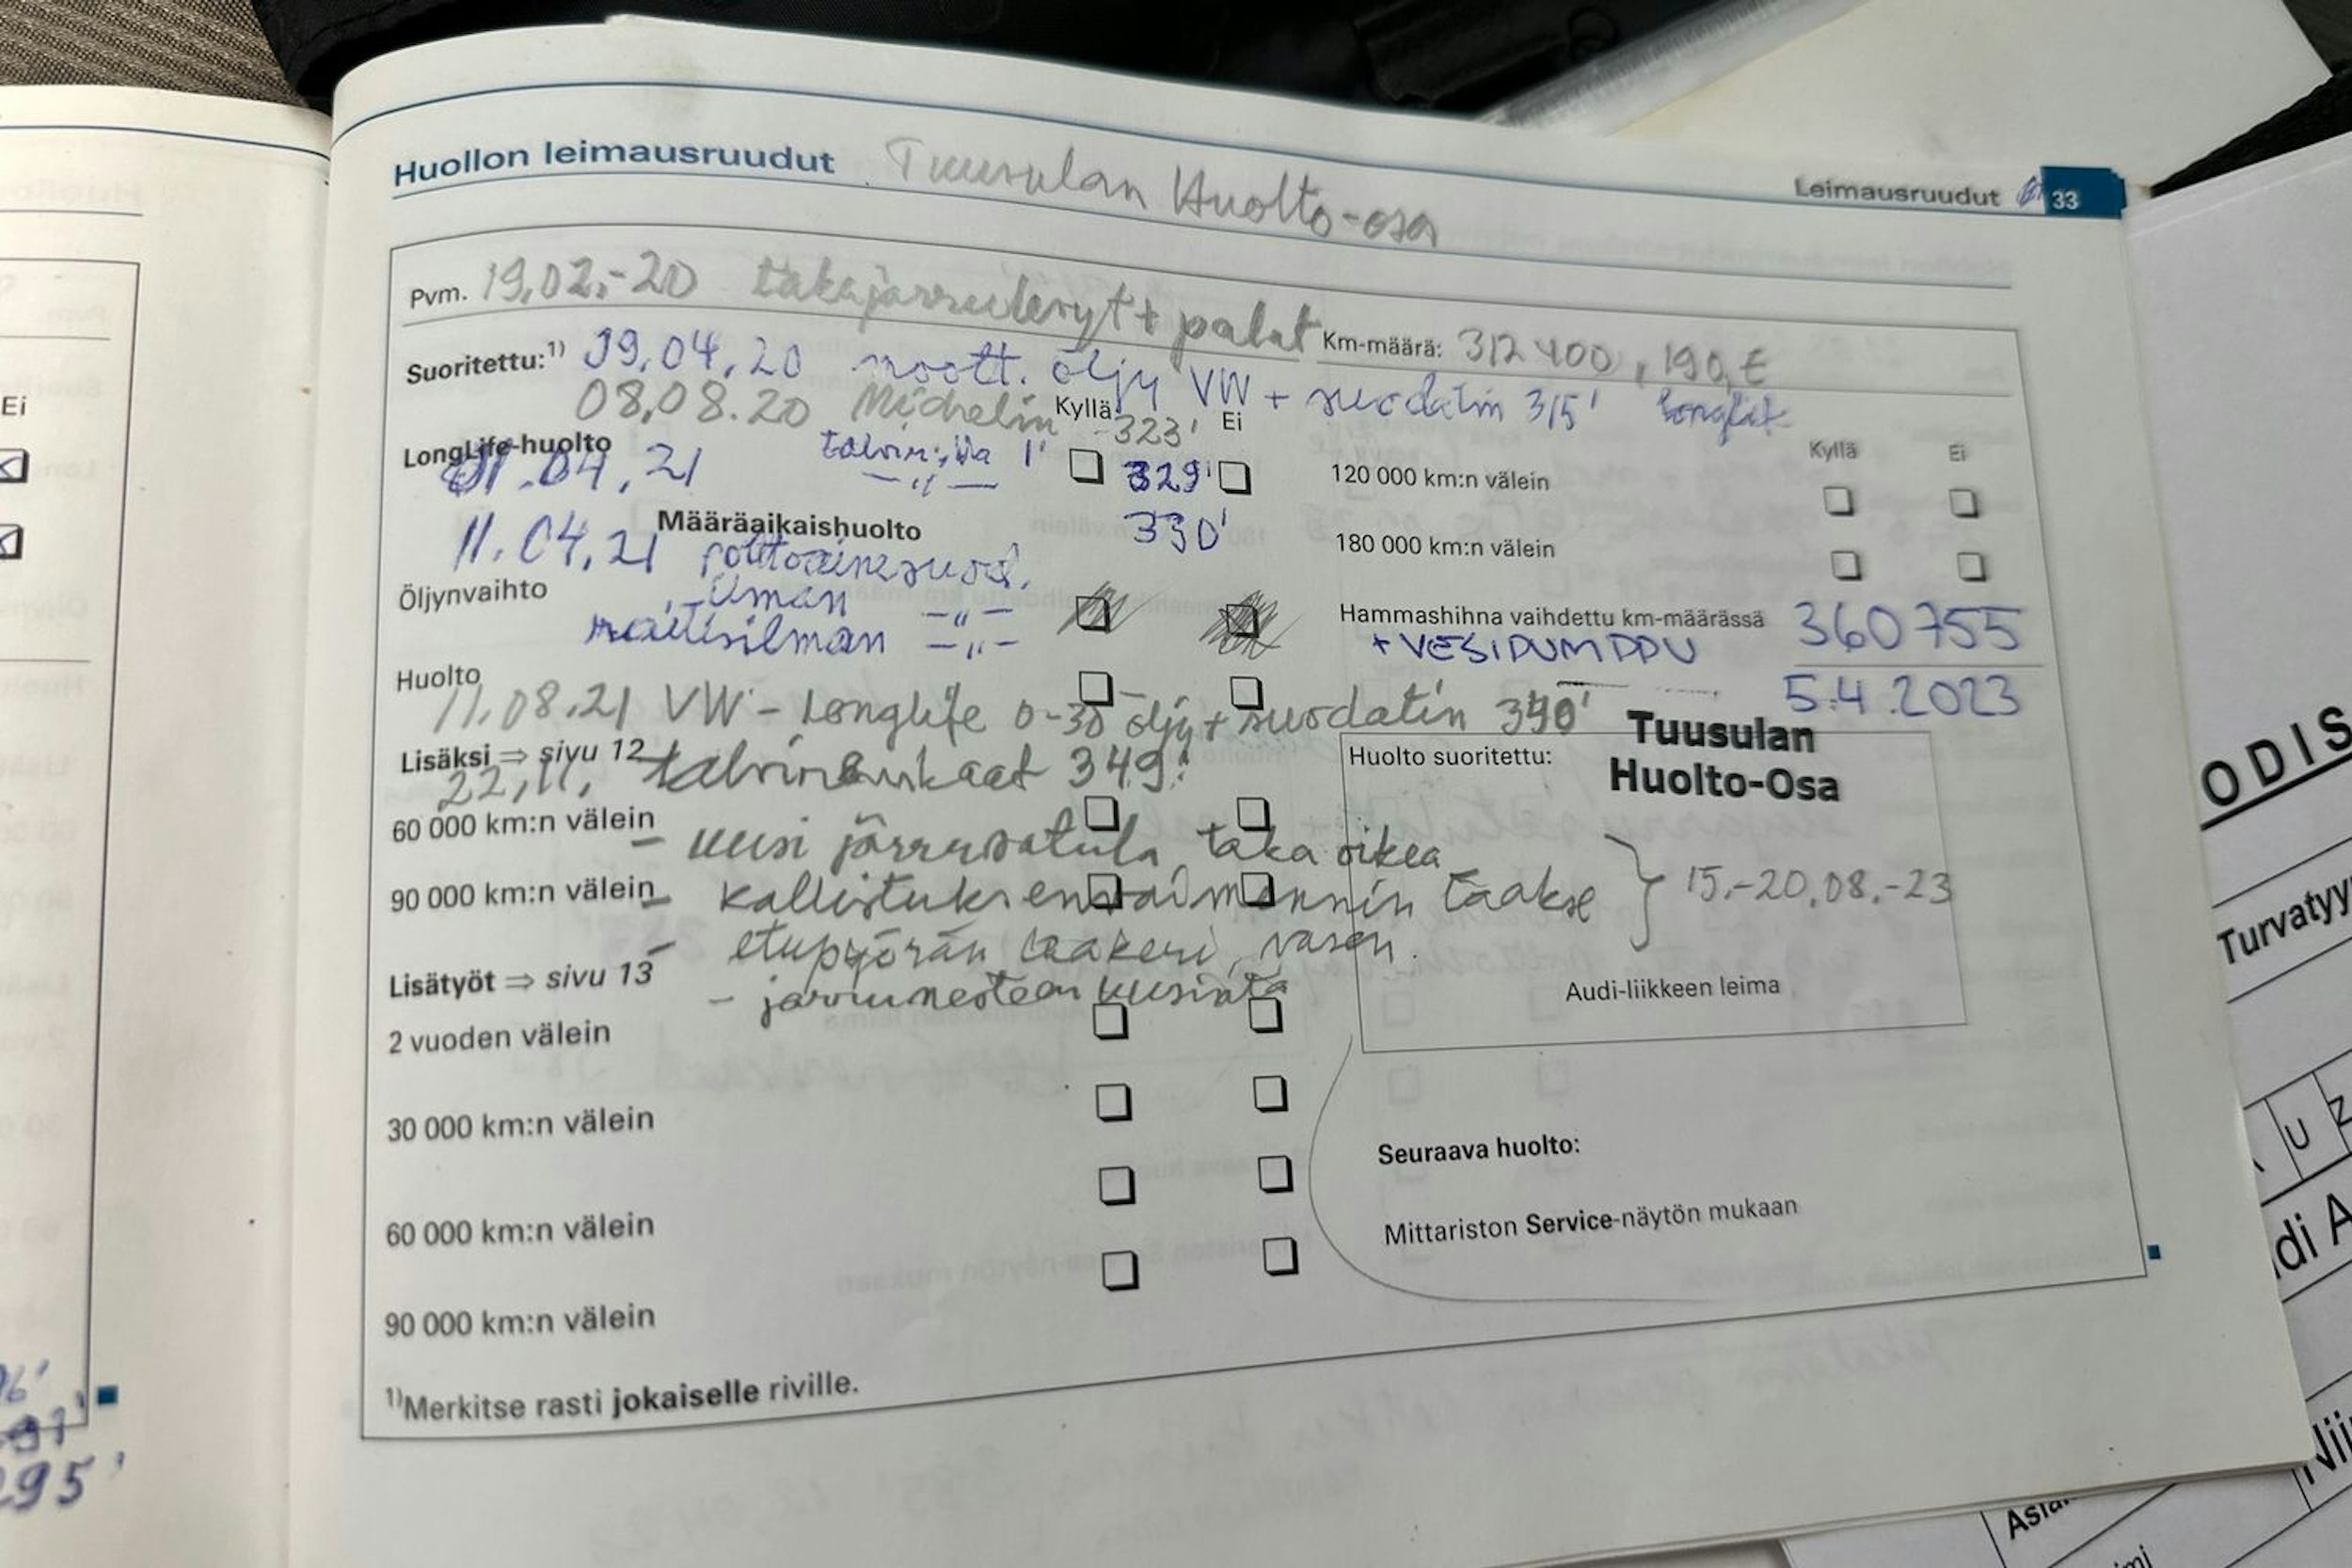 Huollon leimausruudut
Tuusulan Huolto-osa
Leimausruudut 33
Pvm. 19.02.-20 takajarrulevyt + palat
Km-määrä: 312 400, 190,€
Suoritettu:¹⁾ 19.04.20 moott. öljy VW + suodatin 315'
08.08.20 Michelin 323'
Kyllä Ei
LongLife-huolto
talvir:illa 1'
01.04.21 —"— 329'
Kyllä Ei
120 000 km:n välein
Määräaikaishuolto
11.04.21 polttoainesuod. 330'
180 000 km:n välein
Öljynvaihto
ilman —"—
raitisilman —"—
Hammashihna vaihdettu km-määrässä 360 755
+ VESIPUMPPU
5.4.2023
Huolto
11.08.21 VW - Longlife 0-30 öljy + suodatin 340'
Lisäksi ⇒ sivu 12
22.11. talvirenkaat 349'
Huolto suoritettu:
Tuusulan
Huolto-Osa
60 000 km:n välein
- uusi jarrusatula taka oikea
90 000 km:n välein
- kallistuksenvaimennin taakse
15.-20.08.-23
- etupyörän laakeri, vasen.
Lisätyöt ⇒ sivu 13
- jarrunesteen uusinta
Audi-liikkeen leima
2 vuoden välein
30 000 km:n välein
60 000 km:n välein
90 000 km:n välein
Seuraava huolto:
Mittariston Service-näytön mukaan
¹⁾Merkitse rasti jokaiselle riville.
Ei
295'
ODIS
Turvatyy